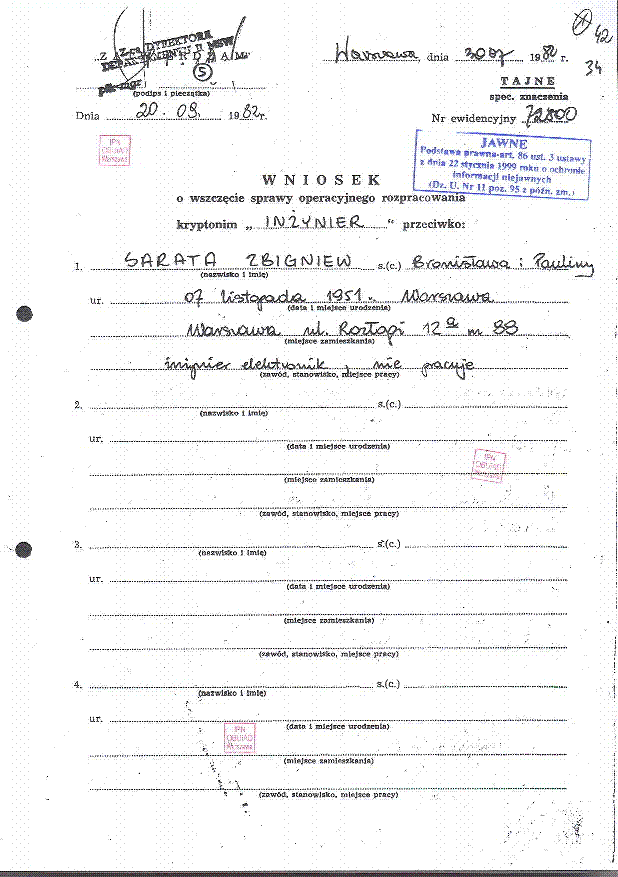 42
34
ZATWIERDZAM
Z-ca DYREKTORA
DEPARTAMENTU II MSW
5
płk mgr
(podpis i pieczątka)
Dnia 20.09. 1982r.
Warszawa, dnia 1982 r.
TAJNE
spec. znaczenia
Nr ewidencyjny 72800
JAWNE
Podstawa prawna-art. 86 ust. 3 ustawy
z dnia 22 stycznia 1999 roku o ochronie
informacji niejawnych
(Dz. U. Nr 11 poz. 95 z późn. zm.)
IPN
OBUiAD
Warszawa
WNIOSEK
o wszczęcie sprawy operacyjnego rozpracowania
kryptonim „ INŻYNIER “ przeciwko:
1. SARATA ZBIGNIEW s.(c.) Bronisława i Pauliny
(nazwisko i imię)
ur. 07 listopada 1951 r. Warszawa
(data i miejsce urodzenia)
Warszawa ul. Rozłogi 12a m 88
(miejsce zamieszkania)
inżynier elektronik, nie pracuje
(zawód, stanowisko, miejsce pracy)
2. s.(c.)
(nazwisko i imię)
ur.
(data i miejsce urodzenia)
IPN
OBUiAD
Warszawa
(miejsce zamieszkania)
(zawód, stanowisko, miejsce pracy)
3. s.(c.)
(nazwisko i imię)
ur.
(data i miejsce urodzenia)
(miejsce zamieszkania)
(zawód, stanowisko, miejsce pracy)
4. s.(c.)
(nazwisko i imię)
ur.
(data i miejsce urodzenia)
IPN
OBUiAD
Warszawa
(miejsce zamieszkania)
(zawód, stanowisko, miejsce pracy)